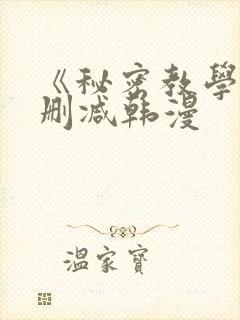 《秘密教學
删减韩漫
溫家寶